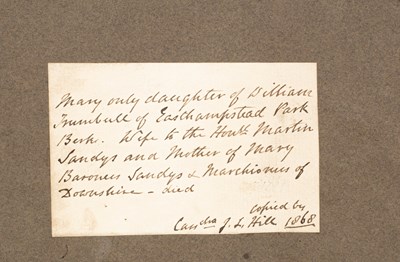 Mary only daughter of William
Trumbull of Easthampstead Park
Berk. Wife to the Honble Martin
Sandys and Mother of Mary
Baroness Sandys & Marchioness of
Downshire – died
copied by
Cassdra J. L. Hill 1868